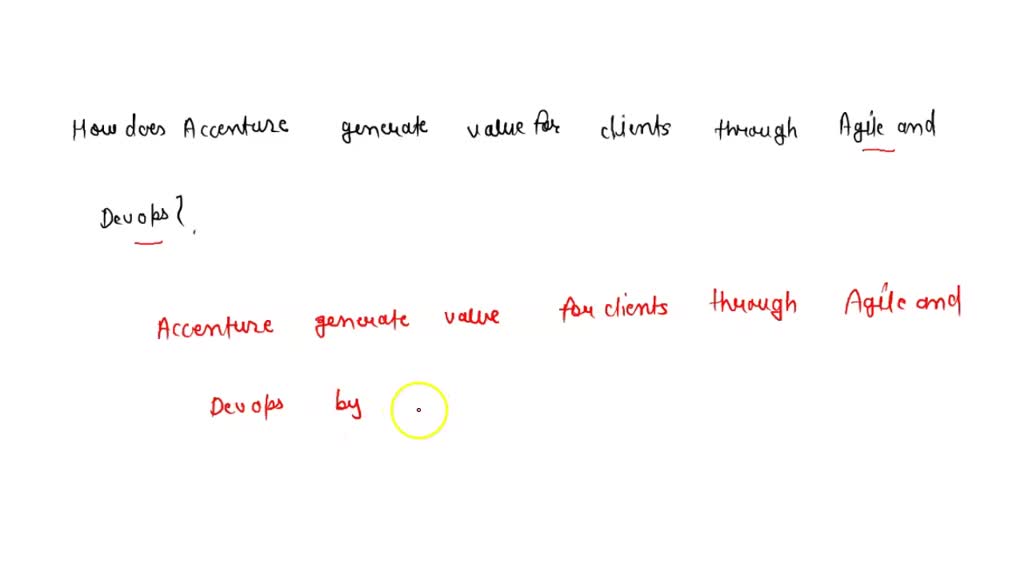 How does Accenture generate value for clients through Agile and
Devops?.
Accenture generate value for clients through Agile and
Devops by